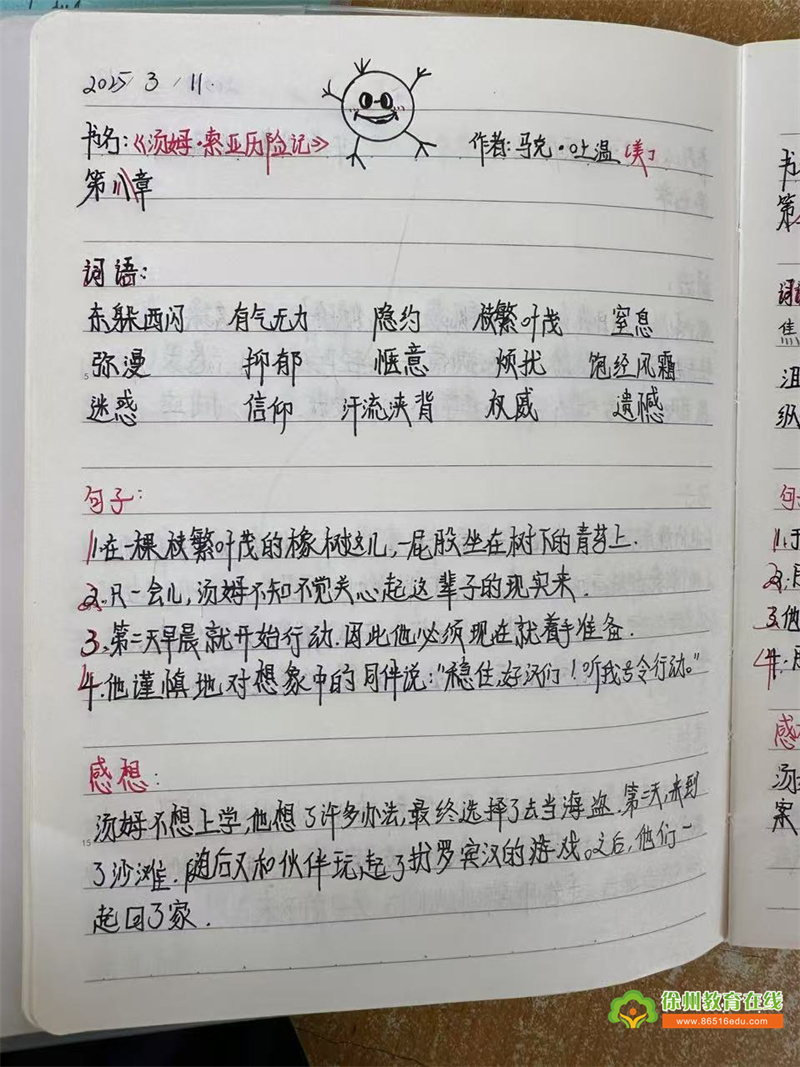 2025/3/11.
书名:《汤姆·索亚历险记》 作者:马克·吐温(美)
第八章
词语:
东躲西闪 有气无力 隐约 枝繁叶茂 窒息
5 弥漫 抑郁 惬意 烦扰 饱经风霜
迷惑 信仰 汗流浃背 权威 遗憾
句子:
1.在一棵枝繁叶茂的橡树这儿,一屁股坐在树下的青苔上.
2.只一会儿,汤姆不知不觉关心起这辈子的现实来.
3.第二天早晨就开始行动.因此他必须现在就着手准备.
4.他谨慎地对想象中的同伴说:"稳住,好汉们!听我号令行动。"
感想:
汤姆不想上学,他想了许多办法,最终选择了去当海盗.第二天,来到
15 了沙滩.随后又和伙伴玩起了扮罗宾汉的游戏。之后,他们一
起回了家.
书
第
词
焦
沮
纵
句
1.于
2.
3.他
4.
感
汤
案
徐州教育在线
www.86516edu.com